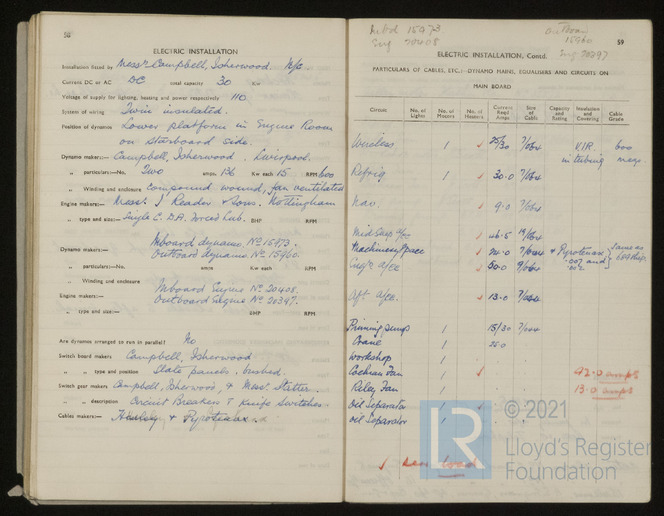 58
ELECTRIC INSTALLATION
Installation fitted by Messrs Campbell, Isherwood.
Current DC or AC DC total capacity 30 Kw
Voltage of supply for lighting, heating and power respectively 110
System of wiring Twin insulated.
Position of dynamos Lower platform in Engine Room
on starboard side.
Dynamo makers:— Campbell, Isherwood. Liverpool.
„ particulars:—No. Two amps. 136 Kw each 15 RPM 600
„ Winding and enclosure Compound wound, fan ventilated
Engine makers:— Messrs J Reader & Sons. Nottingham
„ type and size:— Single C. D.A. Forced Lub. BHP RPM
Inboard dynamo. No 15973.
Dynamo makers:— Outboard dynamo. No 15960.
„ particulars:—No. amps Kw each RPM
„ Winding and enclosure
Inboard Engine No 20408.
Engine makers:— Outboard Engine No 20397.
„ type and size:— BHP RPM
Are dynamos arranged to run in parallel? No
Switch board makers Campbell, Isherwood
„ „ type and position Slate panels, bushed.
Switch gear makers Campbell, Isherwood, & Messrs
„ „ description Circuit Breakers & Knife Switches.
Cables makers:— & Pyrotenax.
Inbd 15973
Eng 20408
15960
Eng 20397
59
ELECTRIC INSTALLATION, Contd.
PARTICULARS OF CABLES, ETC.:—DYNAMO MAINS, EQUALISERS AND CIRCUITS ON
MAIN BOARD
Circuit No. of Lights No. of Motors No. of Heaters Current Reqd Amps Size of Cable Capacity and Rating Insulation and Covering Cable Grade
Wireless 1 25/30 7/064 V.I.R. 600
in tubing megs.
Refrig 1 30.0 7/064
Nav. 9.0 7/064
Midship a/cc 46.5 19/064
Machinery Space 24.0 7/044 & Pyrotenax Same as
Engrs a/cc 50.0 .007 and
Aft a/cc. 13.0 7/064
Priming pump 1 15/30 7/044
Crane 1 25.0
Workshop 1
Cochran Fan 1 42.0 amps
Riley Fan 1 13.0 amps
Oil Separator 1
Oil Separator 1
✓ sea load
LR
© 2021
Lloyd's Register
Foundation